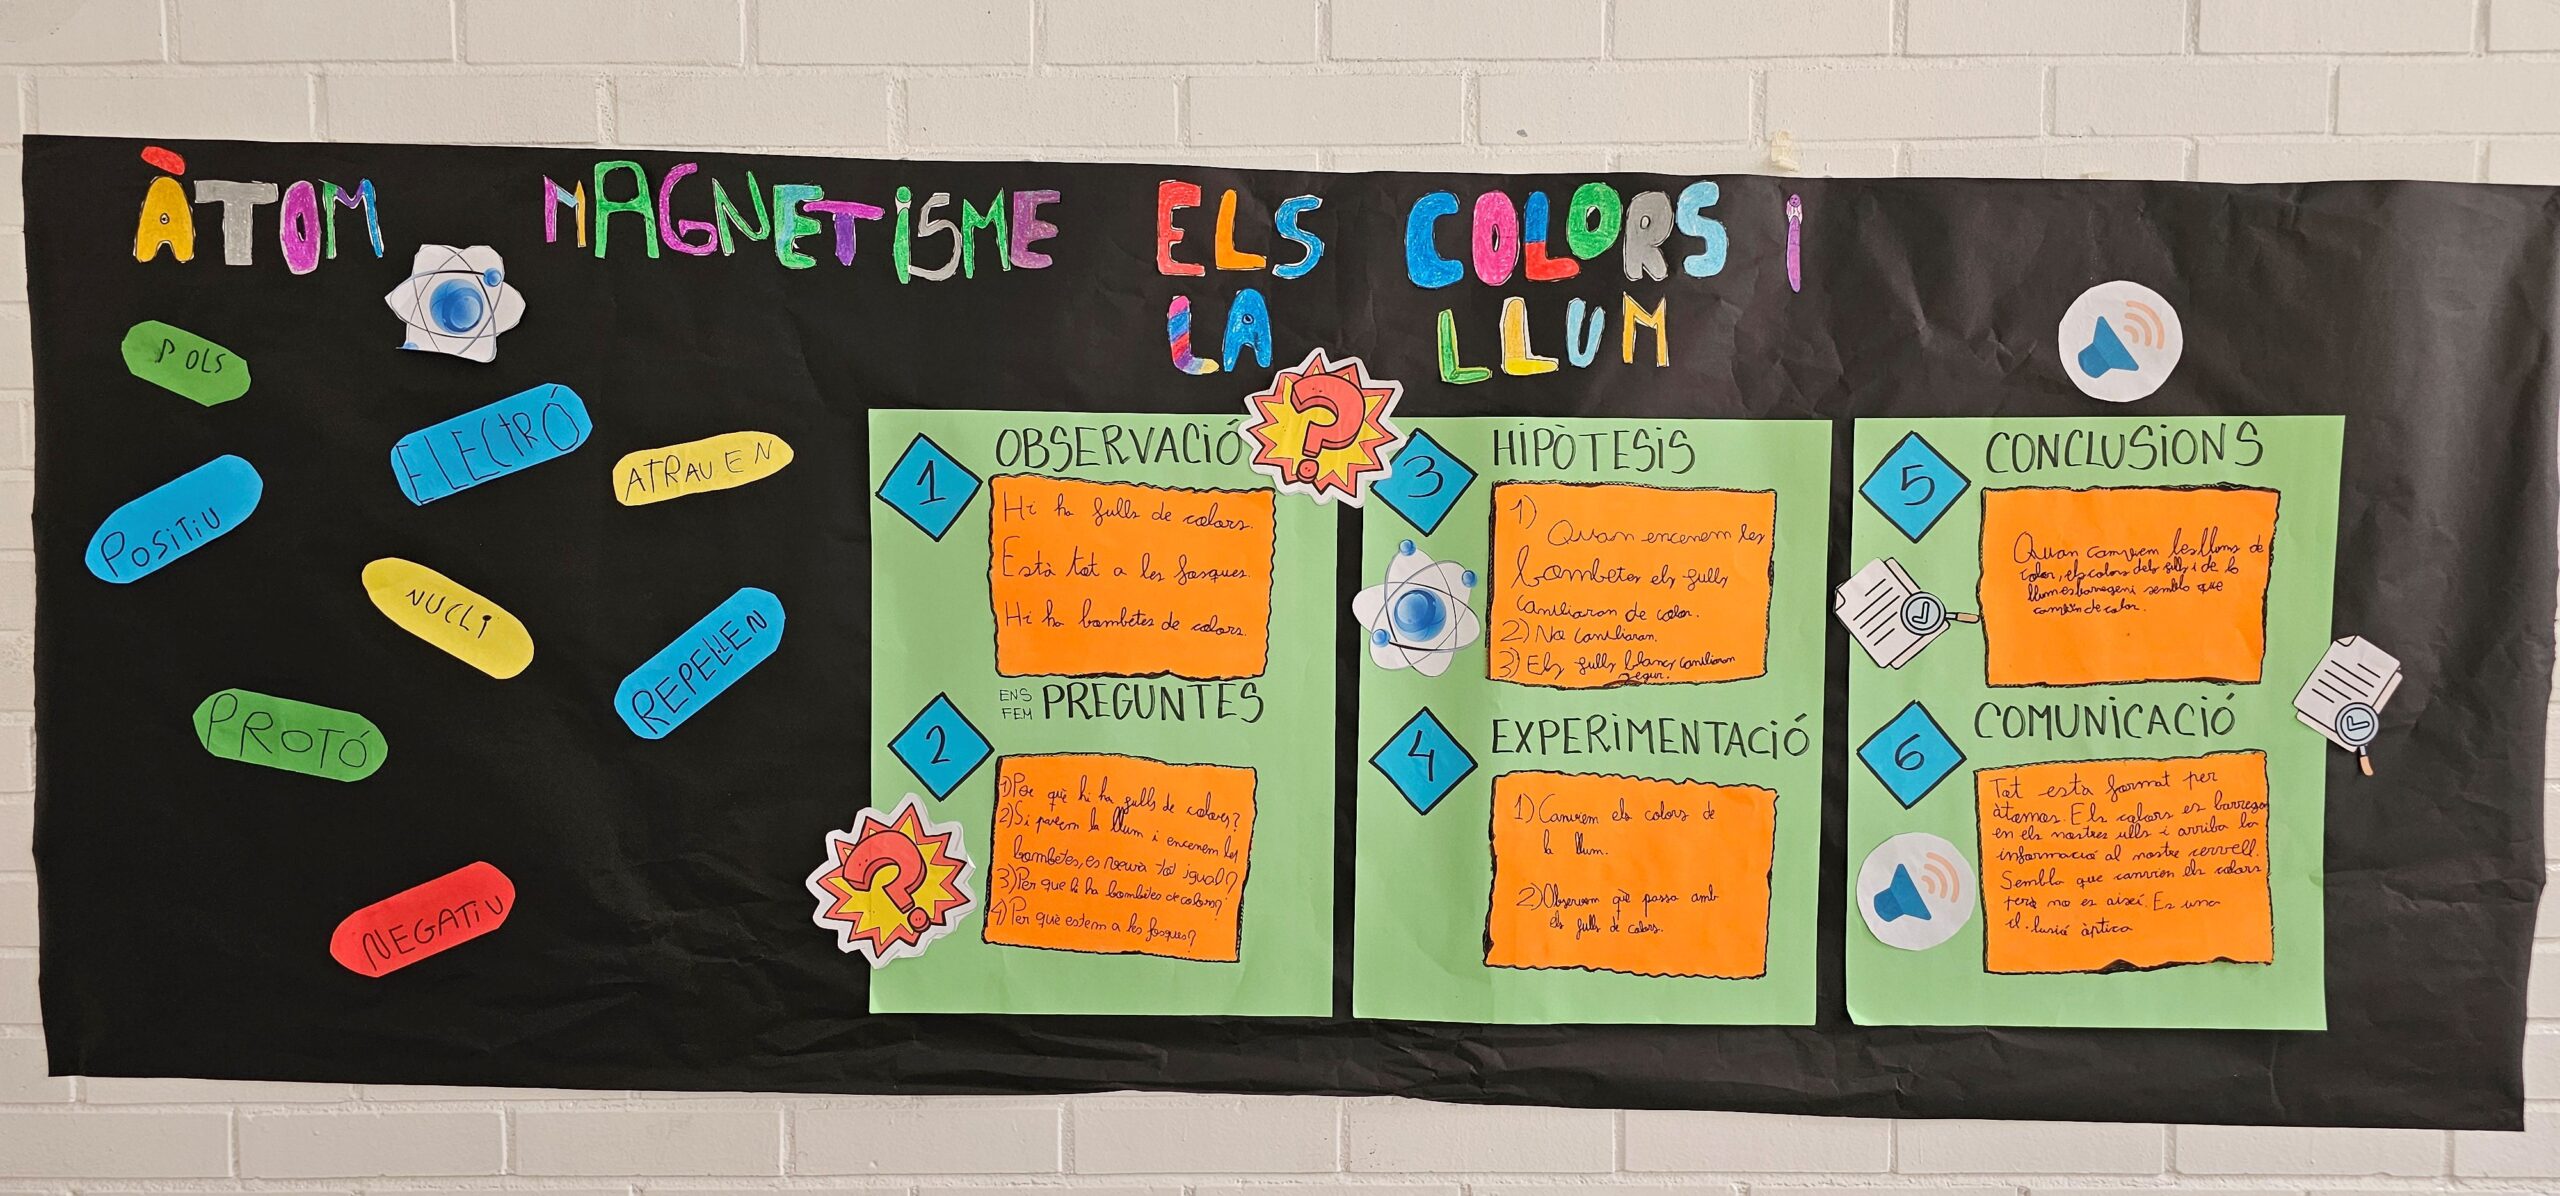 ÀTOM
MAGNETiSME
ELS COLORS i
LA LLUM
POLS
ELECTRÓ
ATRAUEN
POSITIU
NUCLI
REPEL·LEN
PROTÓ
NEGATIU
1
OBSERVACIÓ
Hi ha fulls de colors.
Està tot a les fosques.
Hi ha bombetes de colors.
2
ENS
FEM
PREGUNTES
1) Per què hi ha fulls de colors?
2) Si parem la llum i encenem les
bombetes, es veurà tot igual?
3) Per que hi ha bombetes de colors?
4) Per què estem a les fosques?
3
HIPÒTESIS
1)
Quan encenem les
bombetes els fulls
canviaran de color.
2) No canviaran.
3) Els fulls blancs canviaran
segur.
4
EXPERIMENTACIÓ
1) Canviem els colors de
la llum.
2) Observem què passa amb
els fulls de colors.
5
CONCLUSIONS
Quan canviem les llums de
color, els colors dels fulls i de la
llum es barregen i sembla que
canvien de color.
6
COMUNICACIÓ
Tot està format per
àtomos. Els colors es barregen
en els nostres ulls i arriba la
informació al nostre cervell.
Sembla que canvien els colors
però no es així. Es una
il·lusió òptica